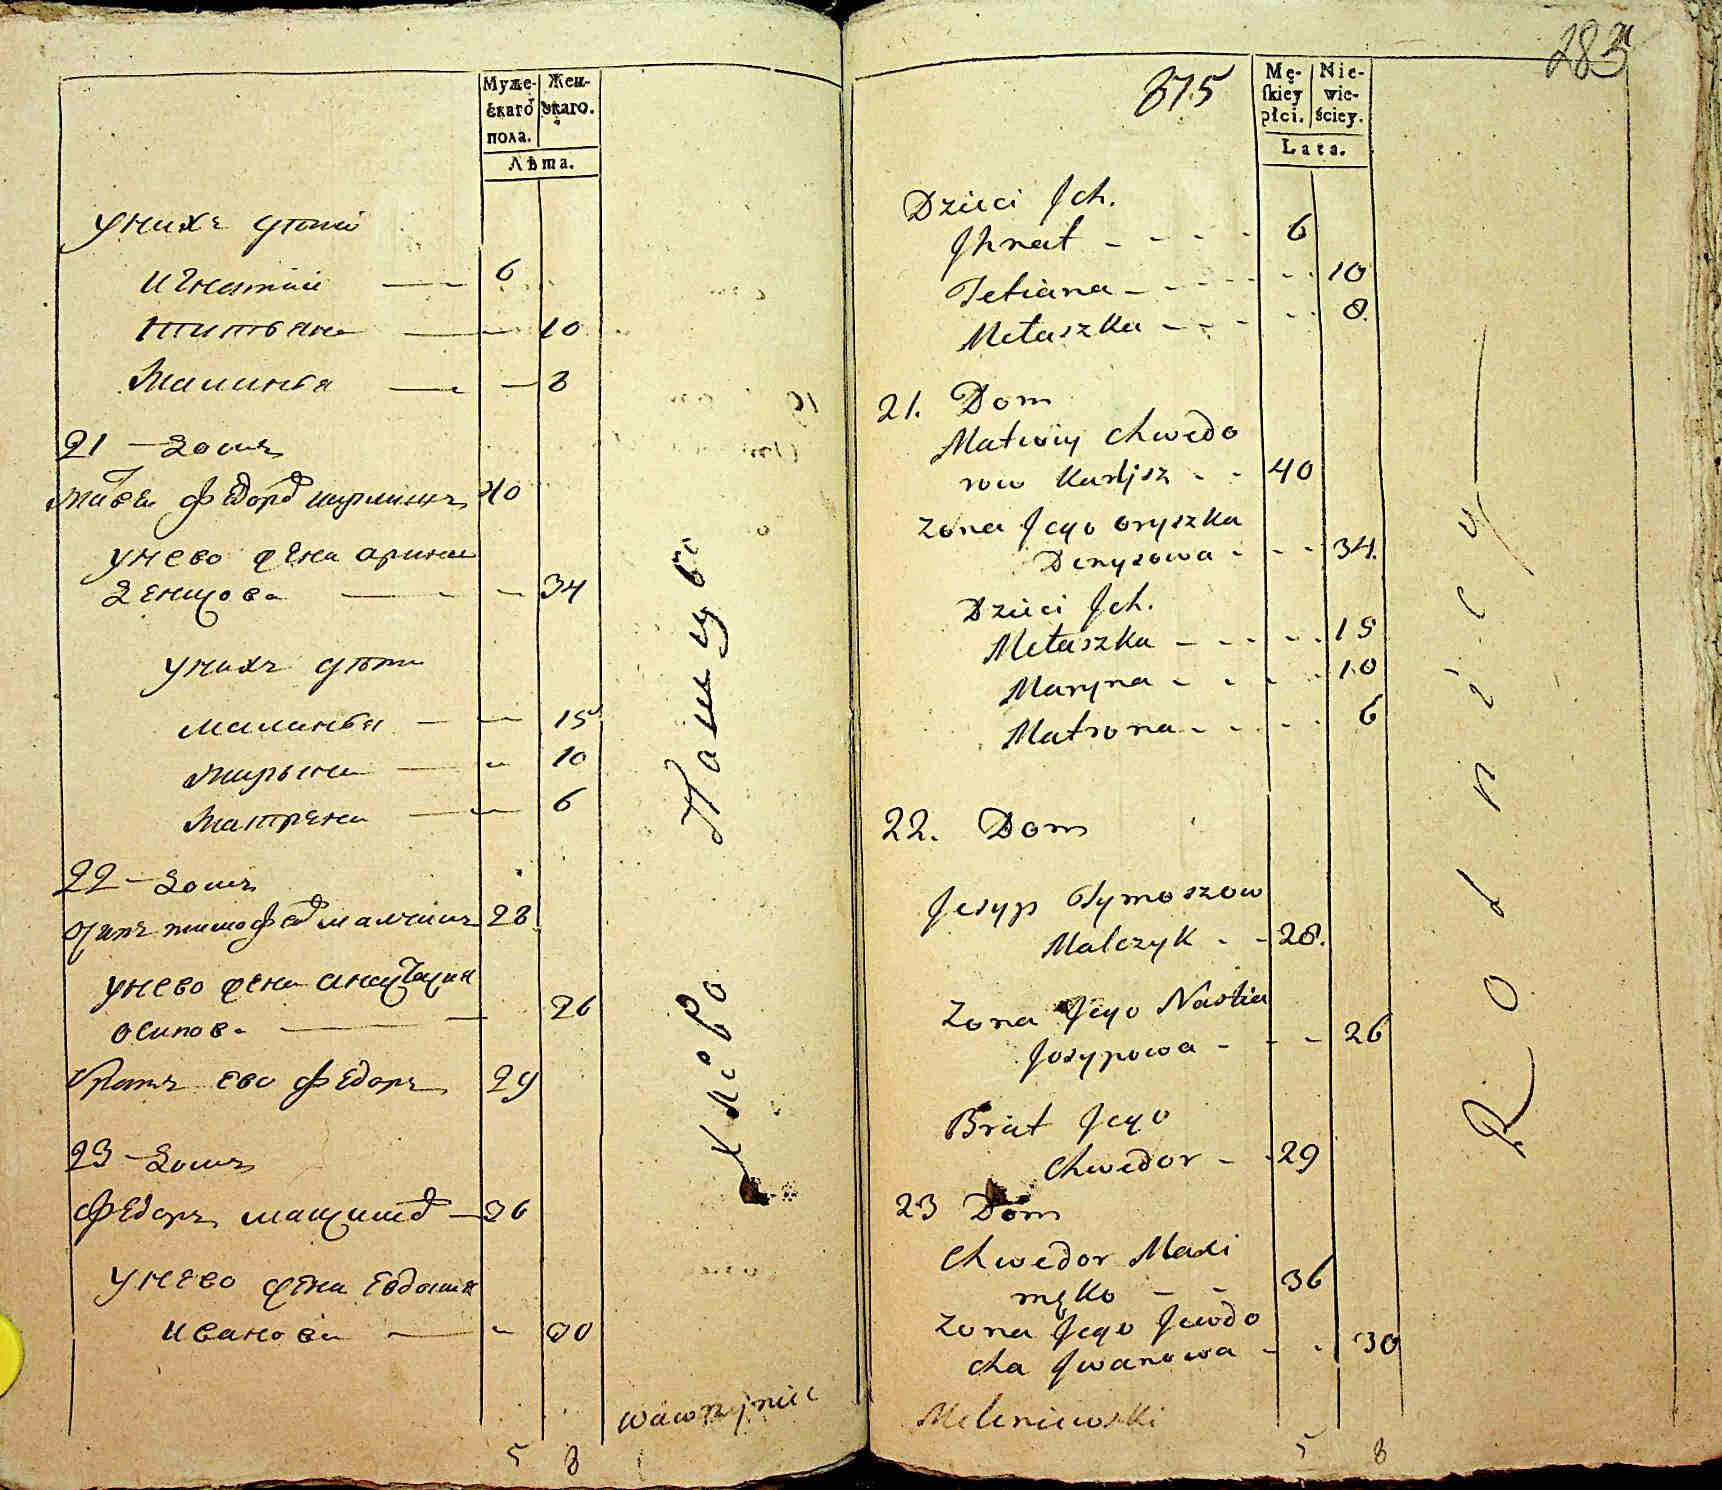 Муже-
скаго
пола.
Жен-
скаго.
Лѣта.
у нихъ дѣти
игнатий — 6
татьяна — 10
Маланья — 8
21 — домъ
40
у нево жена арина
денисова — 34
у нихъ дѣти
маланья — 15
марьяна — 10
Матрена — 6
22 — домъ
осипъ 28
у нево жена анастасия
осипова — 26
братъ ево федоръ 29
23 — домъ
федоръ 36
у нево жена евдокия
иванова — 30
Wawrzyniec
5 8
283
875
Mę-
skiey
płci.
Nie-
wie-
ściey.
Lata.
Dzieci Jch.
Jhnat - - - - 6
Tetiana - - - - 10
Mełaszka - - - - 8.
21. Dom
Matwiy Chwedo
row - - 40
Zona Jego Oryszka
Denysowa - - - 34.
Dzieci Jch.
Mełaszka - - - - 15
Maryna - - - - 10
Matrona - - - - 6
22. Dom
Josyp Tymoszow
Malczyk - - 28.
Zona Jego Nastia
Josypowa - - - 26
Brat Jego
Chwedor - - 29
23 Dom
Chwedor Maxi
męko - - 36
Zona Jego Jewdo
cha Jwanowa - - 30
Meleniewski
5 8
Rodnicy